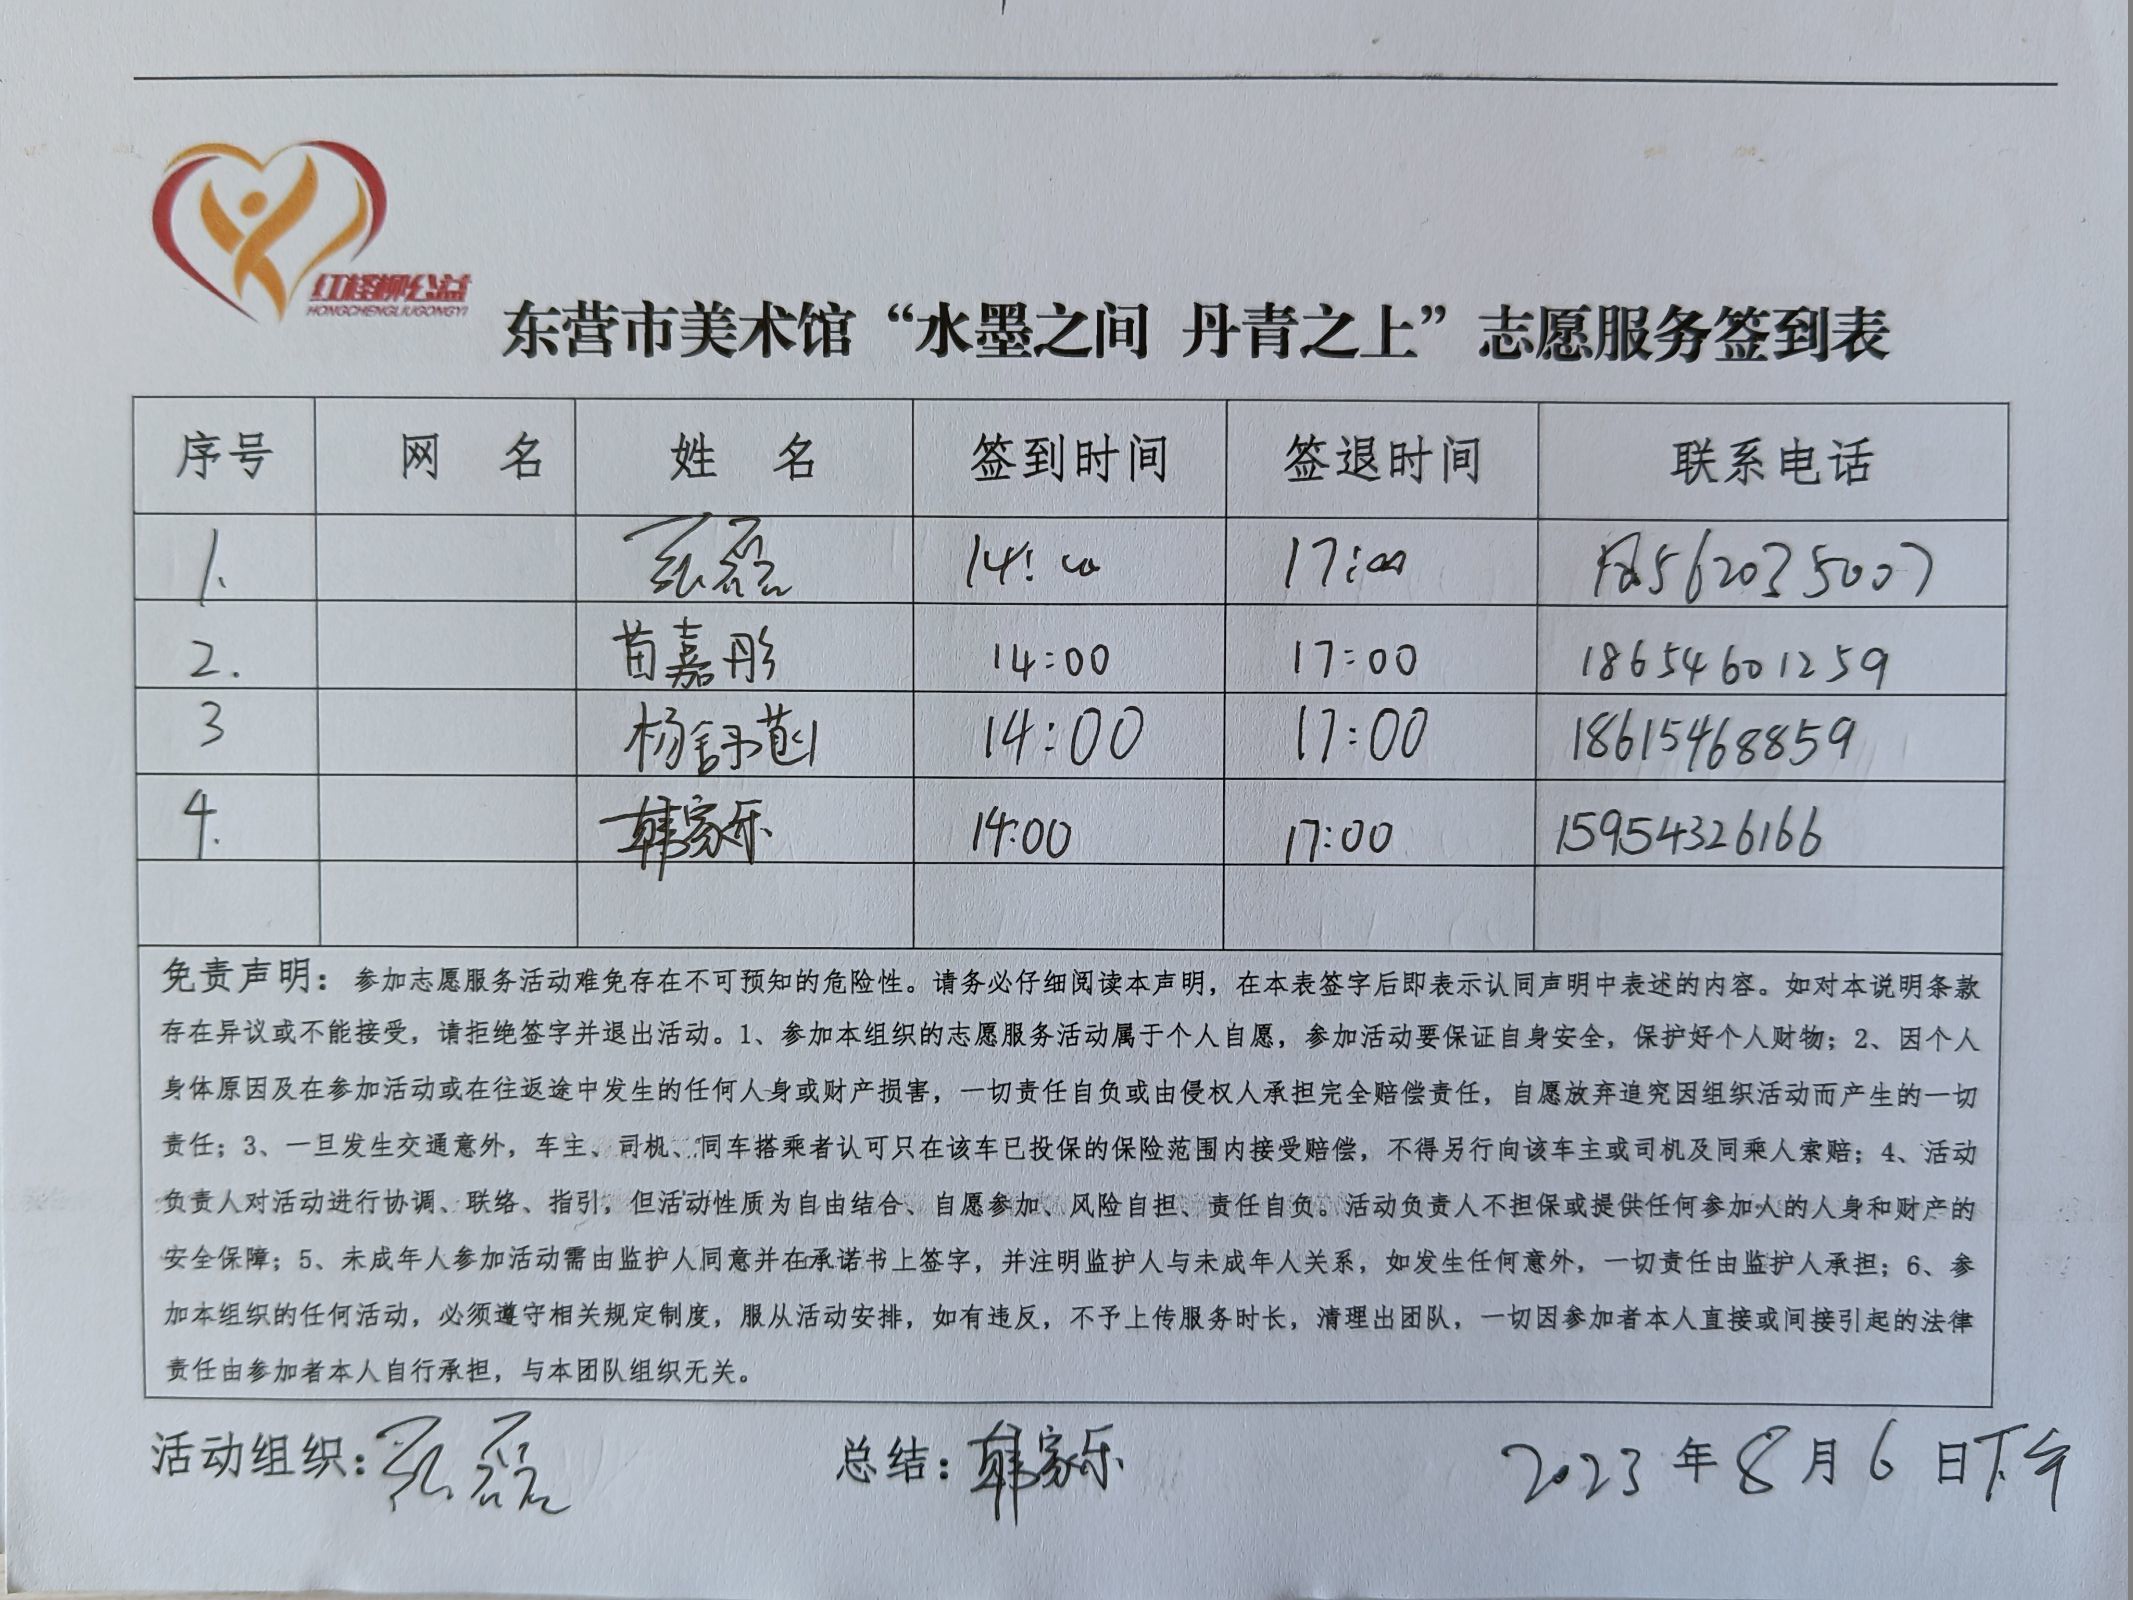 红柽柳公益
HONGCHENGLIUGONGYI
东营市美术馆“水墨之间 丹青之上”志愿服务签到表
序号 网 名 姓 名 签到时间 签退时间 联系电话
1. 磊 14:00 17:00
2. 苗嘉彤 14:00 17:00 18654601259
3 杨舒 14:00 17:00 18615468859
4. 韩家乐 14:00 17:00 15954326166
免责声明：参加志愿服务活动难免存在不可预知的危险性。请务必仔细阅读本声明，在本表签字后即表示认同声明中表述的内容。如对本说明条款
存在异议或不能接受，请拒绝签字并退出活动。1、参加本组织的志愿服务活动属于个人自愿，参加活动要保证自身安全，保护好个人财物；2、因个人
身体原因及在参加活动或在往返途中发生的任何人身或财产损害，一切责任自负或由侵权人承担完全赔偿责任，自愿放弃追究因组织活动而产生的一切
责任；3、一旦发生交通意外，车主、司机、同车搭乘者认可只在该车已投保的保险范围内接受赔偿，不得另行向该车主或司机及同乘人索赔；4、活动
负责人对活动进行协调、联络、指引，但活动性质为自由结合、自愿参加、风险自担、责任自负。活动负责人不担保或提供任何参加人的人身和财产的
安全保障；5、未成年人参加活动需由监护人同意并在承诺书上签字，并注明监护人与未成年人关系，如发生任何意外，一切责任由监护人承担；6、参
加本组织的任何活动，必须遵守相关规定制度，服从活动安排，如有违反，不予上传服务时长，清理出团队，一切因参加者本人直接或间接引起的法律
责任由参加者本人自行承担，与本团队组织无关。
活动组织：磊 总结：韩家乐 2023年8月6日下午